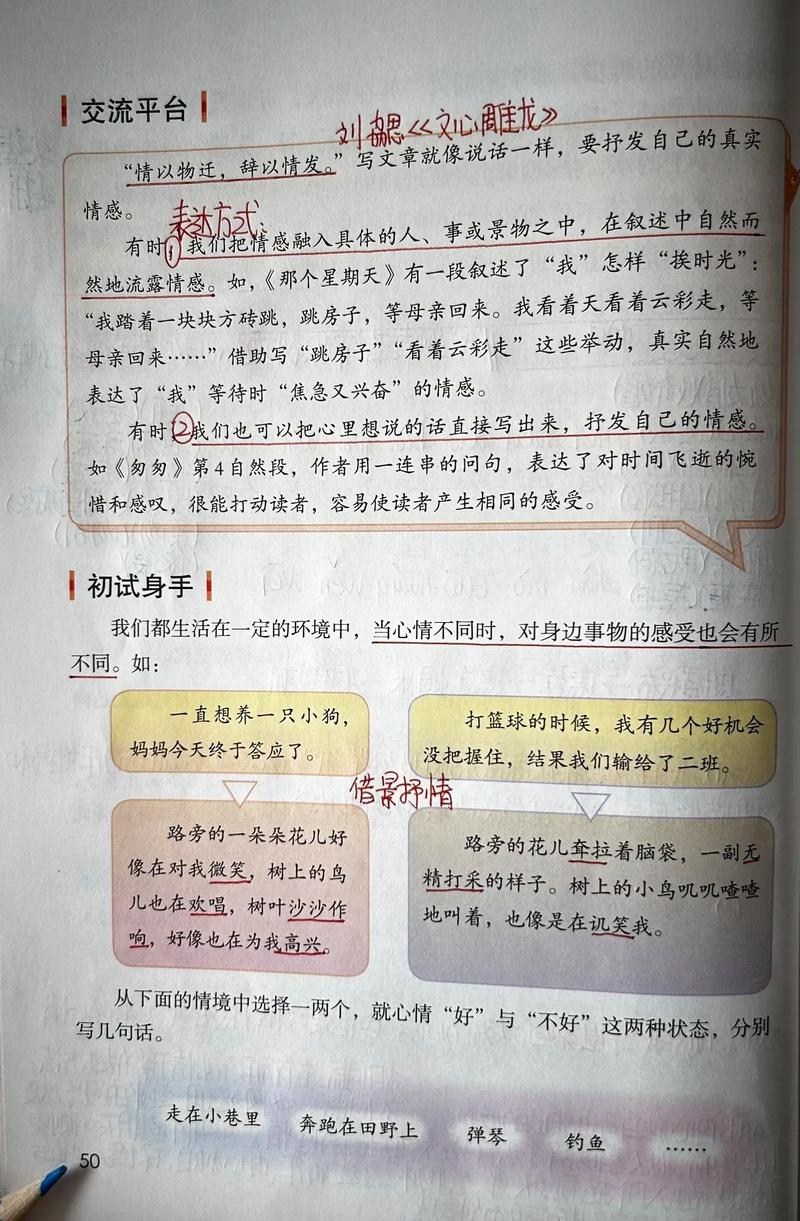 交流平台
刘勰《文心雕龙》
“情以物迁，辞以情发。”写文章就像说话一样，要抒发自己的真实
情感。
表达方式：
有时①我们把情感融入具体的人、事或景物之中，在叙述中自然而
然地流露情感。如，《那个星期天》有一段叙述了“我”怎样“挨时光”：
“我踏着一块块方砖跳，跳房子，等母亲回来。我看着天看着云彩走，等
母亲回来……”借助写“跳房子”“看着云彩走”这些举动，真实自然地
表达了“我”等待时“焦急又兴奋”的情感。
有时②我们也可以把心里想说的话直接写出来，抒发自己的情感。
如《匆匆》第4自然段，作者用一连串的问句，表达了对时间飞逝的惋
惜和感叹，很能打动读者，容易使读者产生相同的感受。
初试身手
我们都生活在一定的环境中，当心情不同时，对身边事物的感受也会有所
不同。如：
一直想养一只小狗，
妈妈今天终于答应了。
打篮球的时候，我有几个好机会
没把握住，结果我们输给了二班。
借景抒情
路旁的一朵朵花儿好
像在对我微笑，树上的鸟
儿也在欢唱，树叶沙沙作
响，好像也在为我高兴。
路旁的花儿耷拉着脑袋，一副无
精打采的样子。树上的小鸟叽叽喳喳
地叫着，也像是在讥笑我。
从下面的情境中选择一两个，就心情“好”与“不好”这两种状态，分别
写几句话。
走在小巷里 奔跑在田野上 弹琴 钓鱼 ……
50